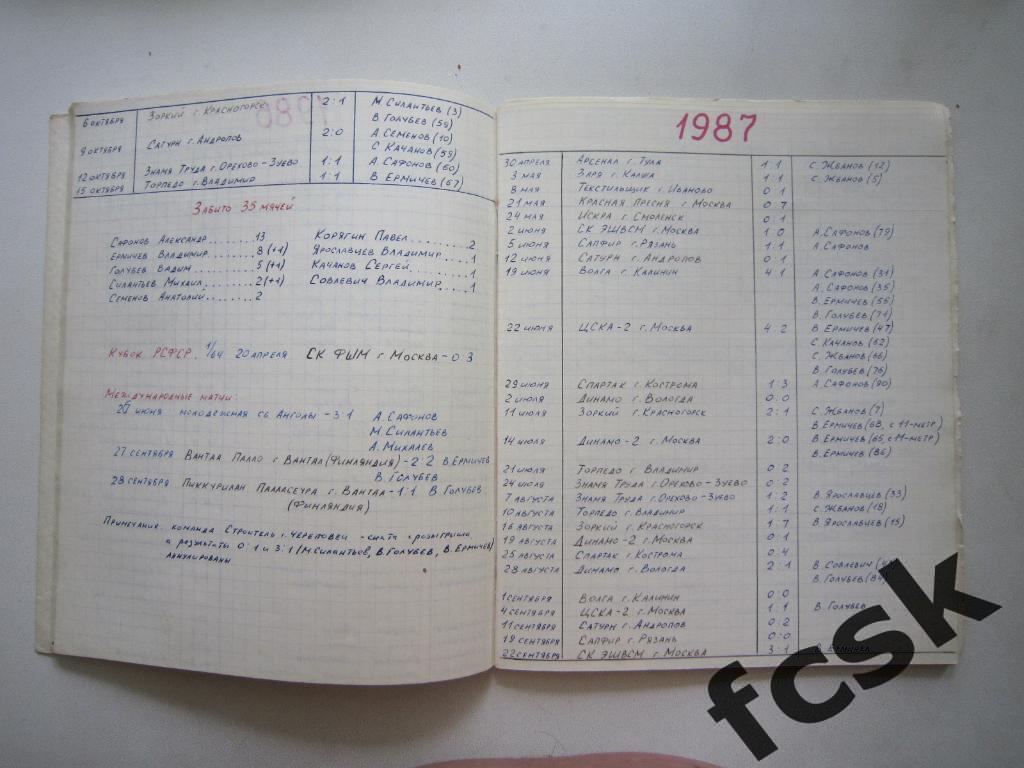 6 октября Зоркий г. Красногорск 2:1 М Силантьев (3)
В Голубев (59)
9 октября Сатурн г. Андропов 2:0 А Семенов (10)
С Качанов (59)
12 октября Знамя Труда г. Орехово-Зуево 1:1 А Сафонов (60)
15 октября Торпедо г. Владимир 1:1 В Ермичев (67)
Забито 35 мячей
Сафонов Александр 13
Ермичев Владимир 8 (+1)
Голубев Вадим 5 (+1)
Силантьев Михаил 2 (+1)
Семенов Анатолий 2
Корягин Павел 2
Ярославцев Владимир 1
Качанов Сергей 1
Совлевич Владимир 1
Кубок РСФСР. 1/64 20 апреля СК ФШМ г Москва - 0 3
Международные матчи:
июня молодежная сб Анголы - 3 1 А Сафонов
М. Силантьев
А Михалев
27 сентября Вантаа Палло г Вантаа (Финляндия) - 2:2 В Ермичев
В. Голубев
28 сентября Пиккурилан Палласеура г. Вантаа - 1:1 В Голубев
(Финляндия)
Примечание: команда Строитель г. Череповец - снята с розыгрыша,
а результаты 0:1 и 3:1 (М. Силантьев, В. Голубев, В. Ермичев)
аннулированы
1987
30 апреля Арсенал г. Тула 1:1 С. Жбанов (12)
3 мая Заря г. Калуга 1:1 С. Жбанов (5)
8 мая Текстильщик г. Иваново 0 1
21 мая Красная Пресня г. Москва 0 7
24 мая Искра г. Смоленск 0:1
2 июня СК ЭШВСМ г. Москва 1 0 А. Сафонов (79)
5 июня Сапфир г. Рязань 1:1 А. Сафонов
12 июня Сатурн г. Андропов 0:1
19 июня Волга г. Калинин 4:1 А Сафонов (31)
А. Сафонов (35)
В. Ермичев (55)
В. Голубев (71)
22 июня ЦСКА-2 г. Москва 4:2 В Ермичев (47)
С Качанов (62)
С. Жбанов (66)
В. Голубев (76)
29 июня Спартак г. Кострома 1:3 А. Сафонов (90)
2 июля Динамо г. Вологда 0:0
11 июля Зоркий г. Красногорск 2:1 С. Жбанов (7)
В Ермичев (68, с 11-метр)
14 июля Динамо-2 г. Москва 2:0 В Ермичев (65, с 11-метр)
В. Ермичев (86)
21 июля Торпедо г. Владимир 0 2
24 июля Знамя Труда г. Орехово-Зуево 0:2
7 августа Знамя Труда г. Орехово-Зуево 1:2 В. Ярославцев (33)
10 августа Торпедо г. Владимир 1:1 С. Жбанов (18)
16 августа Зоркий г. Красногорск 1:7 В. Ярославцев (15)
19 августа Динамо-2 г. Москва 0:1
25 августа Спартак г. Кострома 0:4
28 августа Динамо г. Вологда 2:1 В. Совлевич
В Голубев
1 сентября Волга г. Калинин 0:0
4 сентября ЦСКА-2 г. Москва 1:1 В. Голубев
11 сентября Сатурн г. Андропов 0:2
19 сентября Сапфир г. Рязань 0:0
22 сентября СК ЭШВСМ г. Москва 3:1 В Ермичев
fcsk